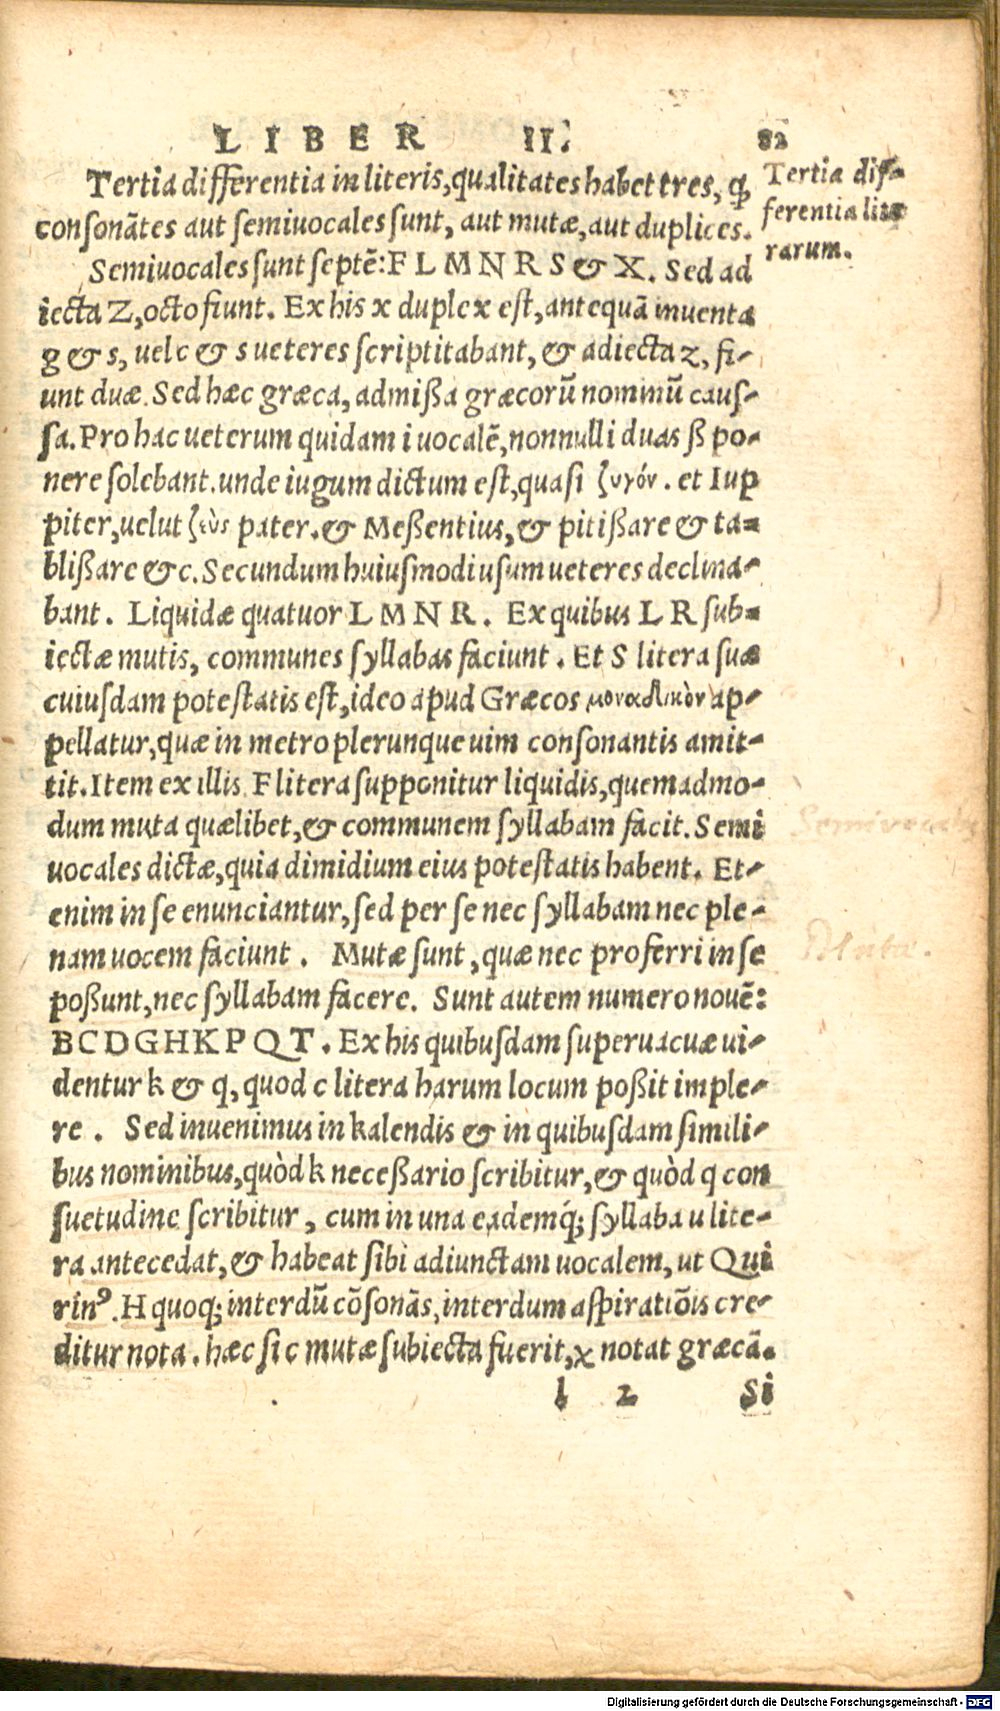 LIBER II. 82
Tertia differentia in literis, qualitates habet tres, ꝙ
consonãtes aut semivocales sunt, aut mutæ, aut duplices.
Tertia dif-
ferentia lite
rarum.
Semivocales sunt septẽ: F L M N R S & X. Sed ad
iecta Z, octo fiunt. Ex his x duplex est, antequã inuenta
g & s, uel c & s ueteres scriptitabant, & adiecta z, fi-
unt duæ. Sed hæc græca, admißa græcorũ nominũ caus-
sa. Pro hac ueterum quidam i uocalẽ, nonnulli duas ß po-
nere solebant. unde iugum dictum est, quasi ζυγόν. et Iup
piter, uelut ζεὺς pater. & Meßentius, & pitißare & ta-
blißare &c. Secundum huiusmodi usum ueteres declina-
bant. Liquidæ quatuor L M N R. Ex quibus L R sub-
iectæ mutis, communes syllabas faciunt. Et S litera suæ
cuiusdam potestatis est, ideo apud Græcos μοναδικὸν ap-
pellatur, quæ in metro plerunque uim consonantis amit-
tit. Item ex illis F litera supponitur liquidis, quemadmo-
dum muta quælibet, & communem syllabam facit. Semi
uocales dictæ, quia dimidium eius potestatis habent. Et-
enim in se enunciantur, sed per se nec syllabam nec ple-
nam uocem faciunt. Mutæ sunt, quæ nec proferri in se
poßunt, nec syllabam facere. Sunt autem numero nouẽ:
B C D G H K P Q T. Ex his quibusdam superuacuæ ui-
dentur k & q, quod c litera harum locum poßit imple-
re. Sed inuenimus in kalendis & in quibusdam simili-
bus nominibus, quòd k neceßario scribitur, & quòd q con
suetudine scribitur, cum in una eademq́; syllaba u lite-
ra antecedat, & habeat sibi adiunctam uocalem, ut Qui
rinꝰ. H quoq; interdũ cõsonãs, interdum aspiratiõis cre-
ditur nota. hæc si c mutæ subiecta fuerit, χ notat græcã.
l 2 Si
Semivocales
Mutæ.
Digitalisierung gefördert durch die Deutsche Forschungsgemeinschaft - DFG